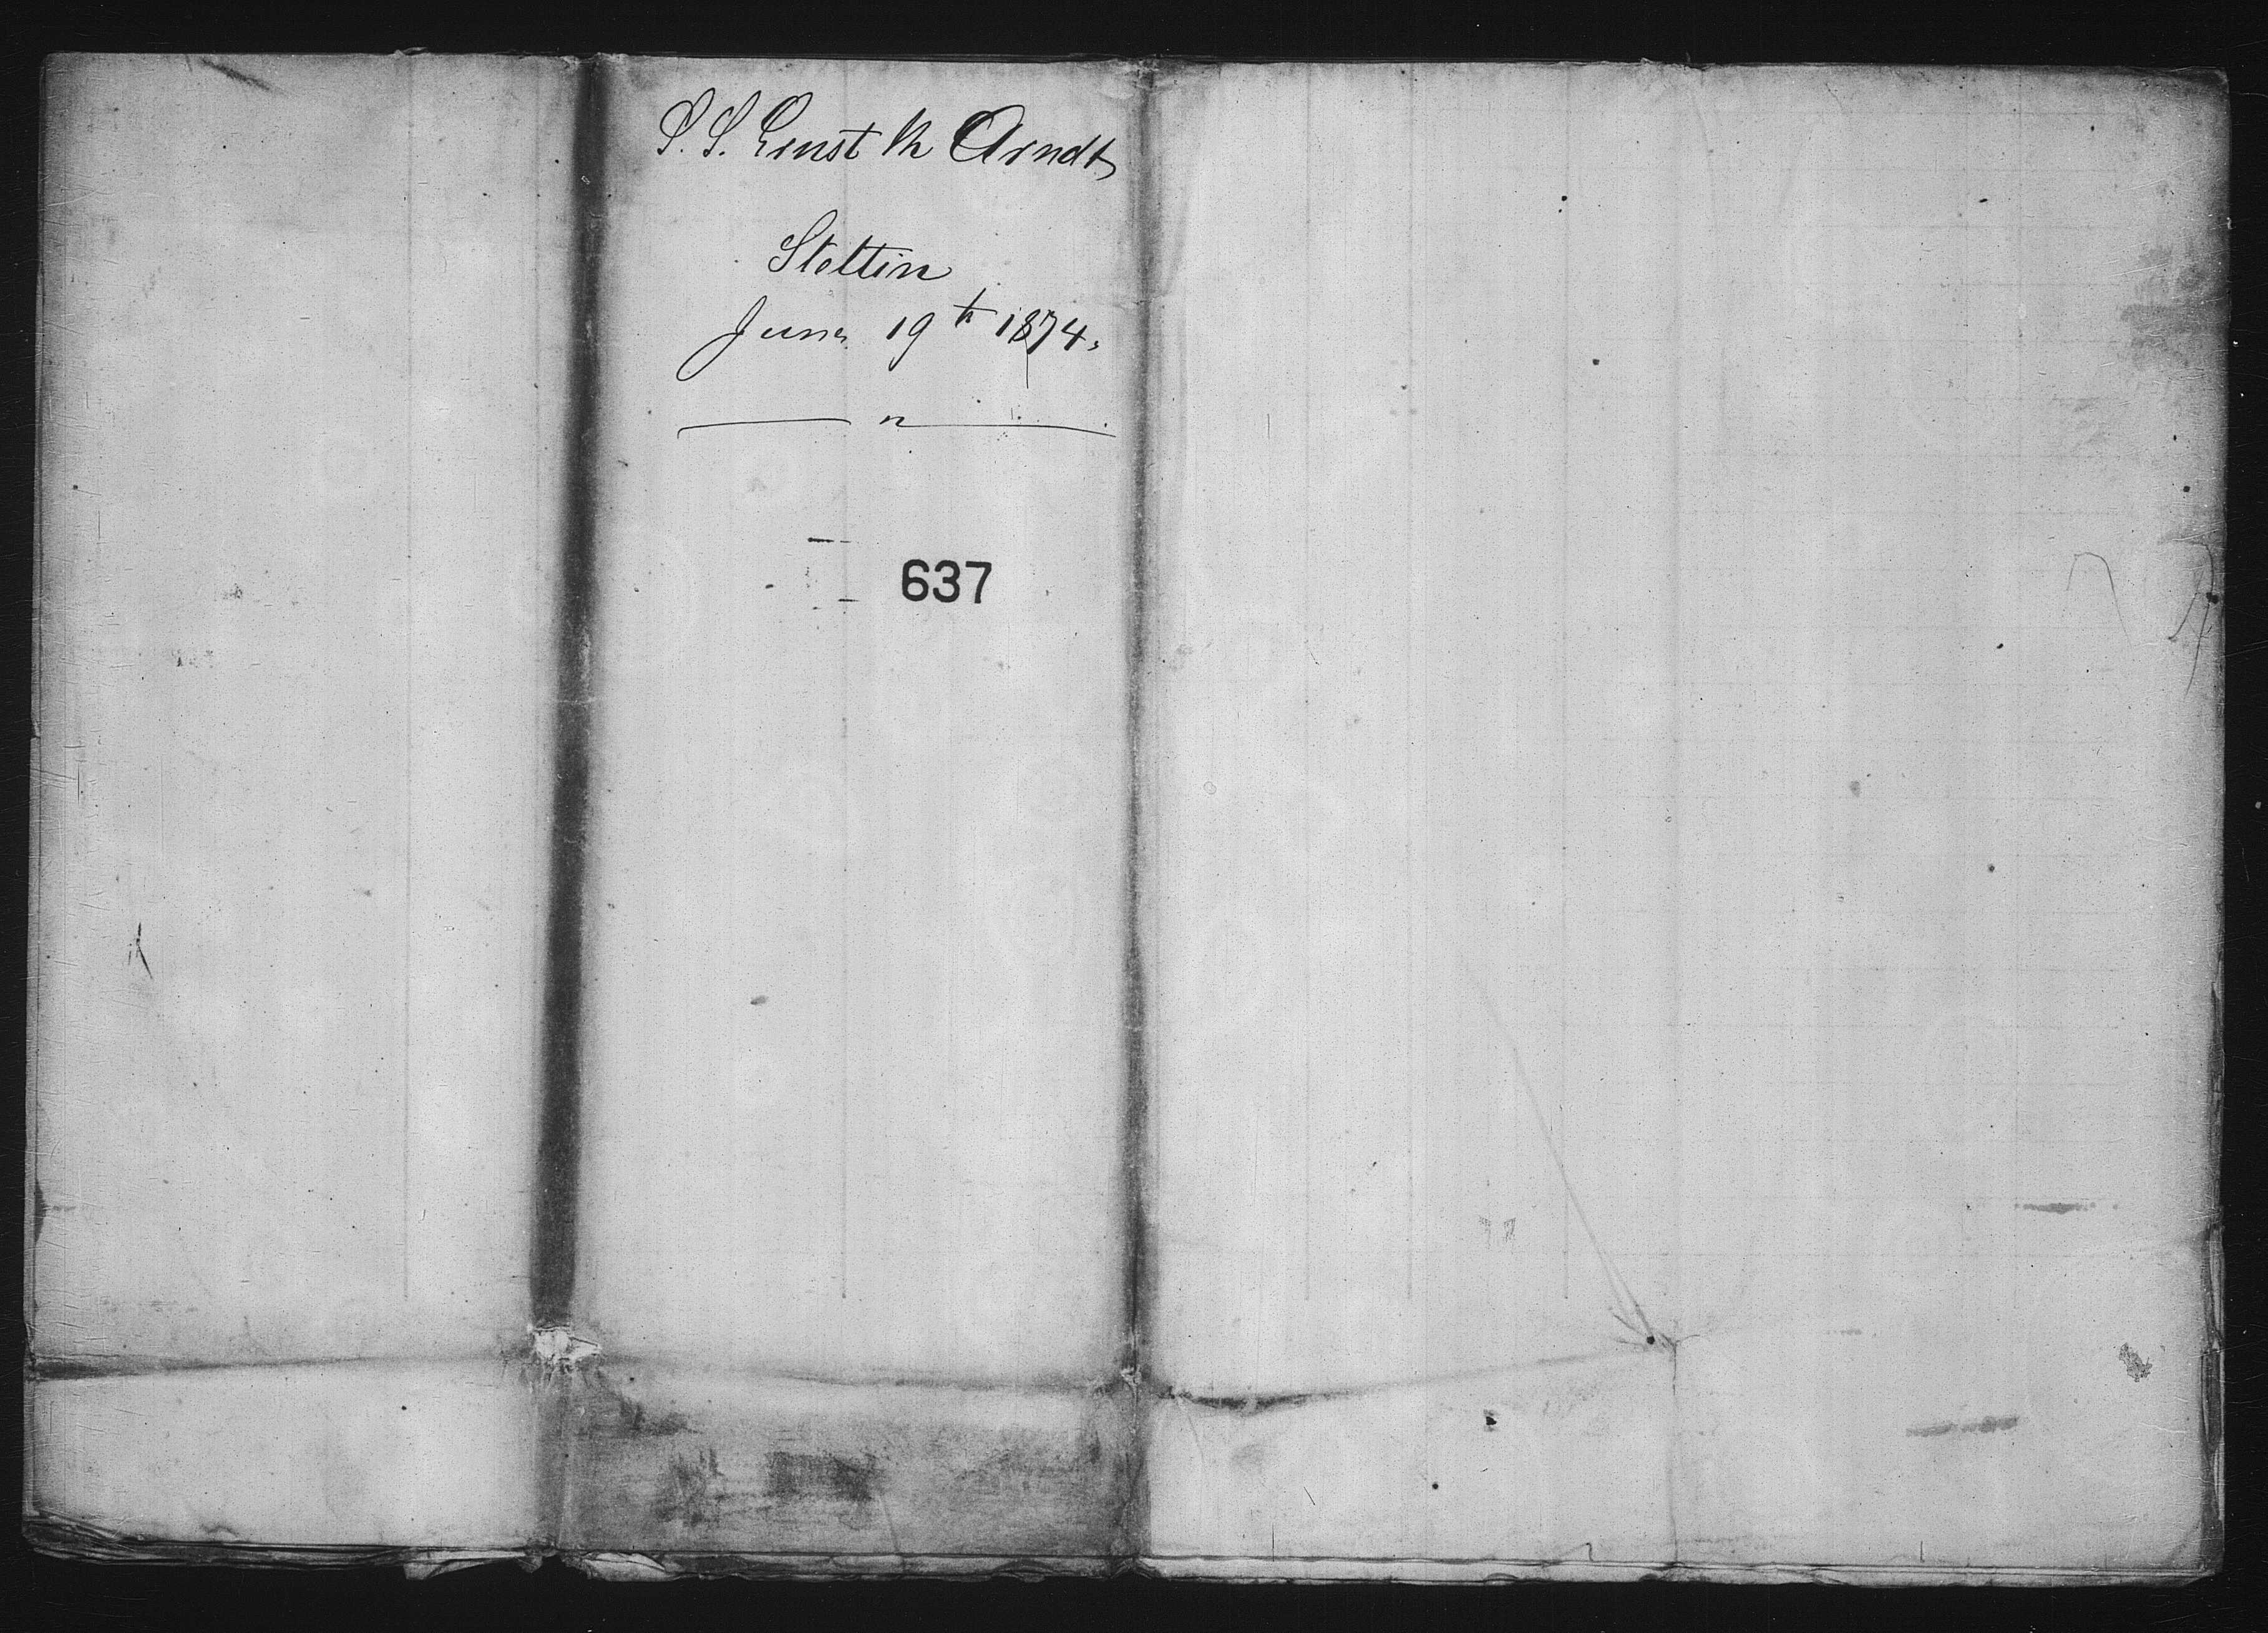 S. S. Ernst M Arndt
Stettin
June 19th 1874.
637